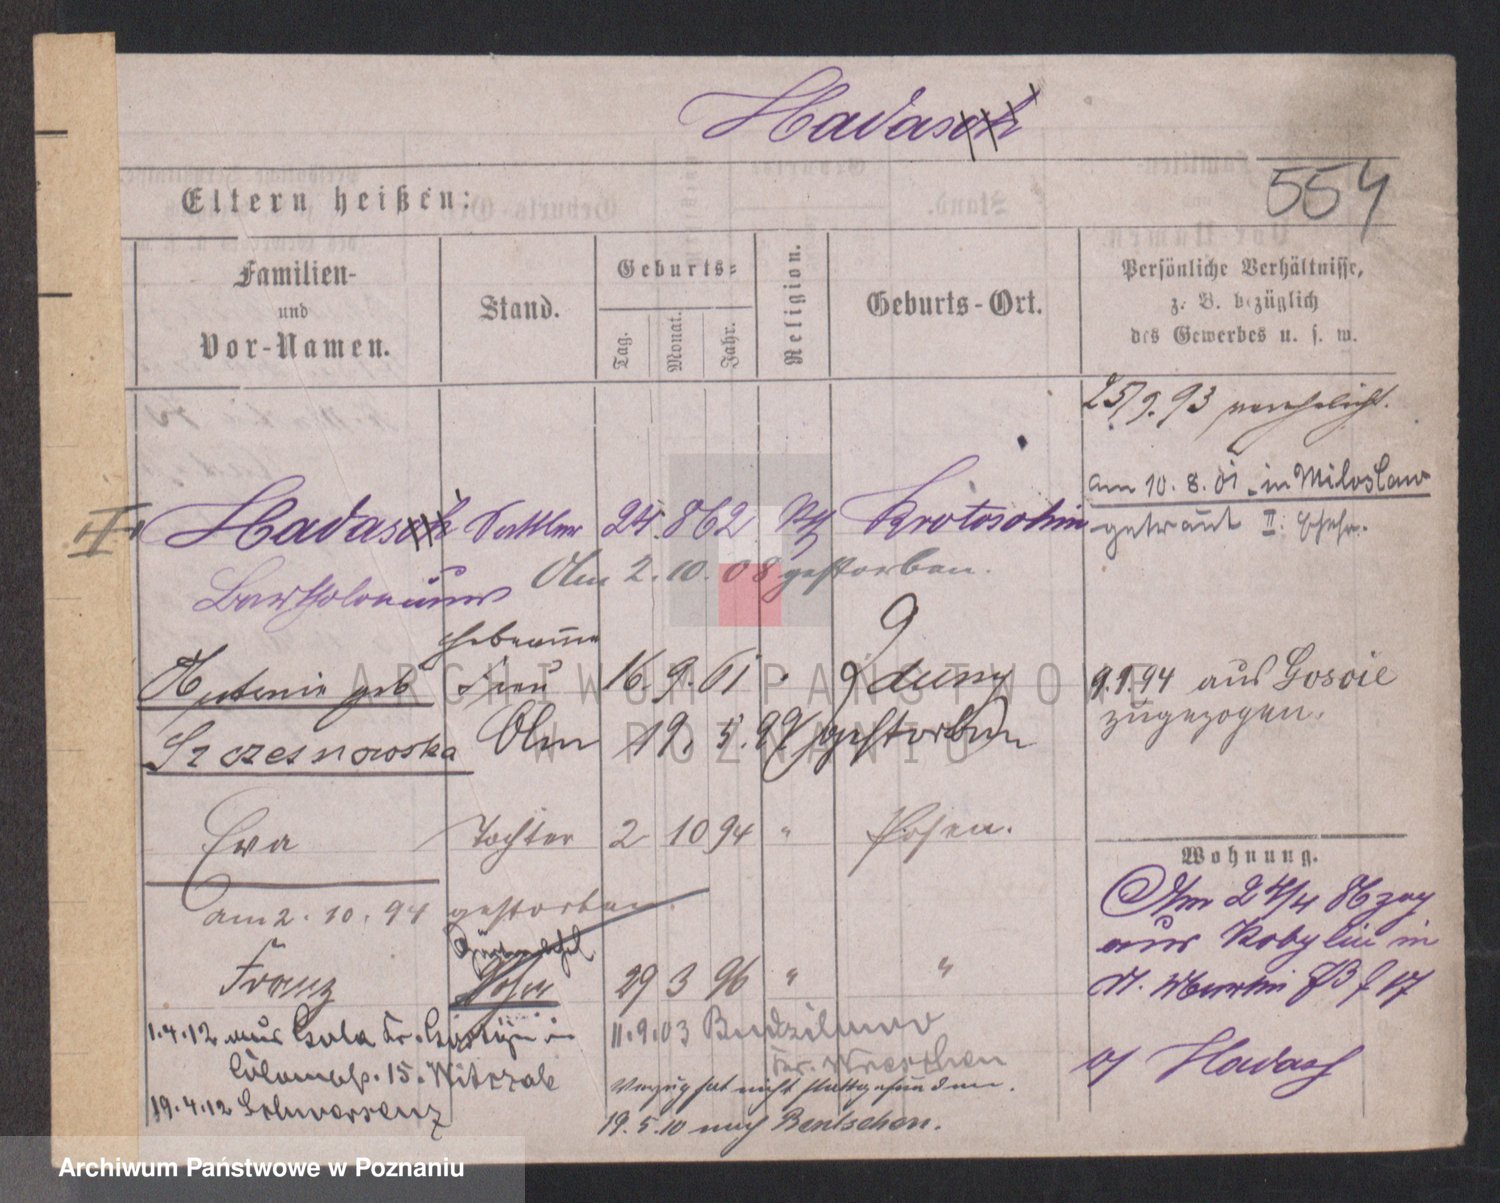 Hadasch
554
Eltern heißen:
Familien-
und
Vor-Namen.
Stand.
Geburts-
Tag.
Monat.
Jahr.
Religion.
Geburts-Ort.
Persönliche Verhältnisse,
z. B. bezüglich
des Gewerbes u. s. w.
25/9.93 verehelicht.
am 10.8.01. in Miloslaw
getraut II: Ehefr.
II Hadasch Sattler 24. 862 Krotoschin
Bartholomäus Am 2.10.08 gestorben.
geb Frau 16. 9. 61 Zduny
9.1.94 aus
zugezogen.
Szczesnowska Am 19. 5. 99 gestorben
Eva Tochter 2 10 94 " Posen.
am 2.10.94 gestorben.
Wohnung.
Am 24/4 86 zog
aus Kobylin in
St. Martin 73 f 17
Franz Sohn 29 3 96 " "
1.4.12 aus Gola Kr. Gostyn in
15. Witczak
19.4.12 Schwersenz
11.9.03
Kr. Wreschen
Verzug hat nicht stattgefunden.
19.5.10 nach Bentschen.
Hadasch
ARCHIWUM PAŃSTWOWE
W POZNANIU
Archiwum Państwowe w Poznaniu